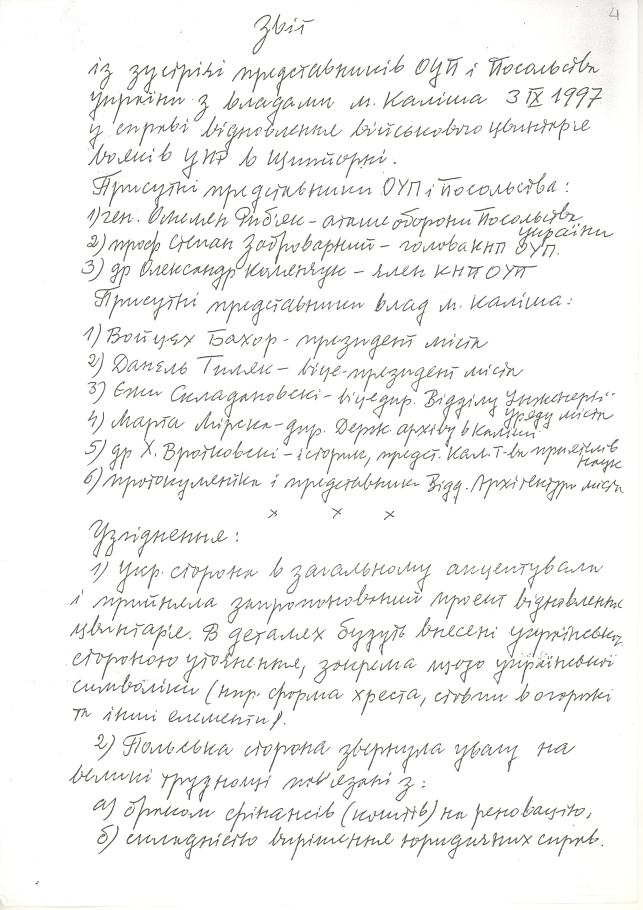 4
Звіт
із зустрічі представників ОУП і Посольства
України з владами м. Каліша 3 IX 1997
у справі відновлення військового цвинтаря
вояків УНР в Щипіорні.
Присутні представники ОУП і Посольства:
1) ген. Омелян Риб'як – аташе оборони Посольства
України
2) проф Степан Заброварний – голова КНП ОУП.
3) др Олександр Коленчук – член КНП ОУП
Присутні представники влад м. Каліша:
1) Войцех Бахор – президент міста
2) Данель Тиляк – віце-президент міста
3) Єжи Складановскі – віцедир. Відділу Інженерії
Уряду міста
4) Марта Мірска – дир. Держ. архіву в Каліші
5) др Х. Вротковскі – історик, предст. Кал. Т-ва приятелів
Наук
6) протокулянтка і представник Відд. Архітектури міста
х х х
Узгіднення:
1) Укр. сторона в загальному акцептувала
і прийняла запропонований проект відновлення
цвинтаря. В деталях будуть внесені українською
стороною уточнення, зокрема щодо української
символіки (нпр. форма хреста, стовпи в огорожі
та інші елементи).
2) Польська сторона звернула увагу на
великі труднощі пов'язані з:
а) браком фінансів (коштів) на реновацію,
б) складністю вирішення юридичних справ.